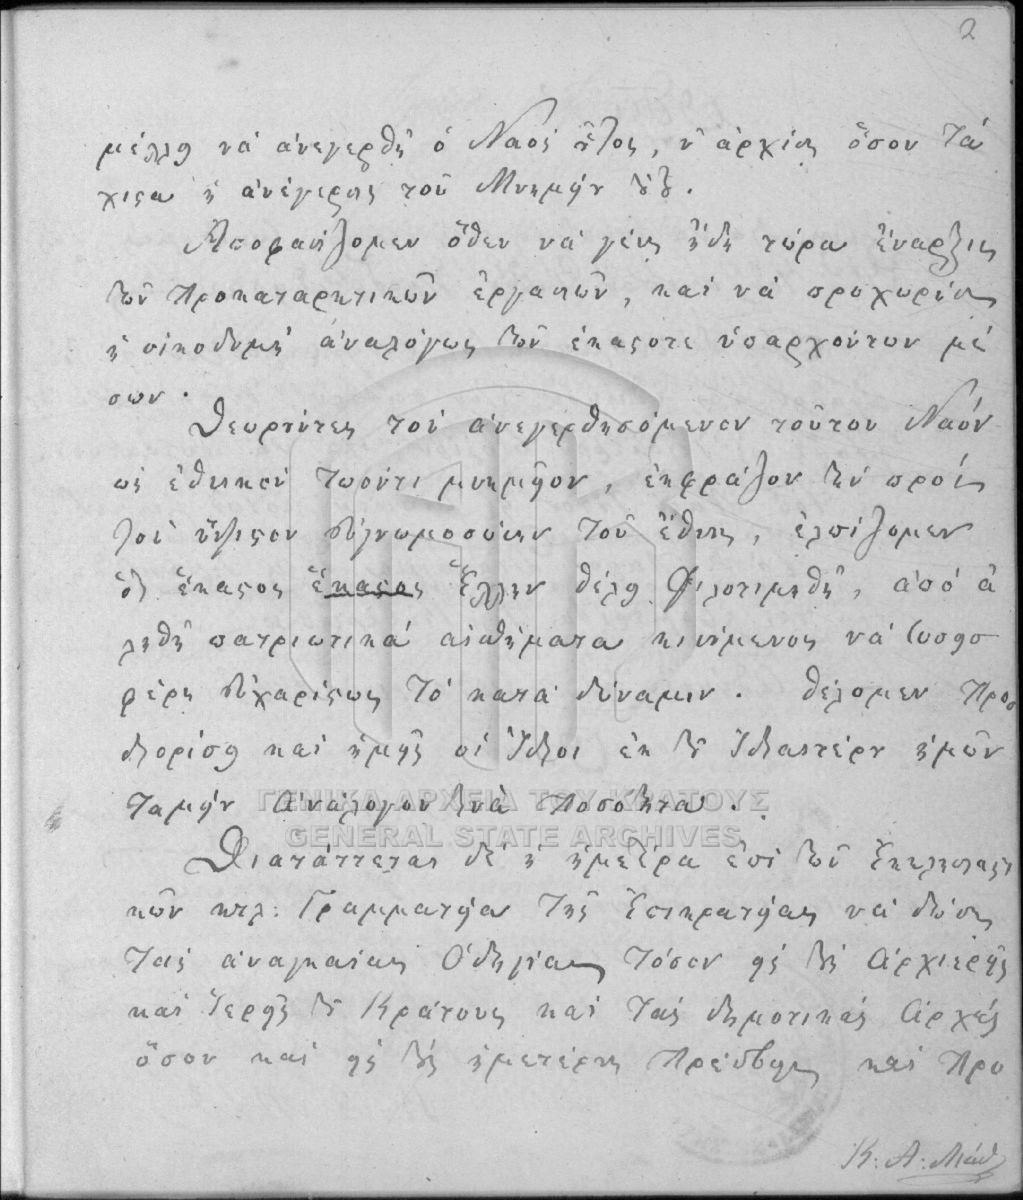 2
μέλλει νὰ ἀνεγερθῇ ὁ Ναὸς οὗτος, ν' ἀρχίσῃ ὅσον τά
χιστα ἡ ἀνέγερσις τοῦ Μνημείου
Ἀποφασίζομεν ὅθεν νὰ γένῃ ἤδη τώρα ἔναρξις
τῶν Προκαταρκτικῶν ἐργασιῶν, καὶ νὰ προχωρήσῃ
ἡ οἰκοδομὴ ἀναλόγως τῶν ἑκάστοτε ὑπαρχόντων μέ
σων.
Θεωροῦντες τὸν ἀνεγερθησόμενον τοῦτον Ναὸν
ὡς ἐθνικὸν τωόντι μνημεῖον, ἐκφράζον τὴν πρὸς
εὐγνωμοσύνην τοῦ ἔθνους, ἐλπίζομεν
ὅτι ἕκαστος ἕκαστος Ἕλλην θέλει φιλοτιμηθῆ, ἀπὸ ἀ
ληθῆ πατριωτικὰ αἰσθήματα κινούμενος νὰ συνεισ
φέρῃ εὐχαρίστως τὸ κατὰ δύναμιν. Θέλομεν Προσ
διορίσει καὶ ἡμεῖς οἱ Ἴδιοι ἐκ τοῦ Ἰδιαιτέρου ἡμῶν
Ταμείου ἀνάλογον τινὰ Ποσότητα.
ΓΕΝΙΚΑ ΑΡΧΕΙΑ ΤΟΥ ΚΡΑΤΟΥΣ
GENERAL STATE ARCHIVES
Διατάττεται δὲ ἡ ἡμετέρα ἐπὶ τῶν Ἐκκλησιαστι
κῶν κτλ: Γραμματεία τῆς Ἐπικρατείας νὰ δώσῃ
Τὰς ἀναγκαίας Ὁδηγίας τόσον εἰς τοὺς Ἀρχιερεῖς
καὶ Ἱερεῖς τοῦ Κράτους καὶ τὰς δημοτικὰς Ἀρχὰς
ὅσον καὶ εἰς τοὺς ἡμετέρους Πρέσβεις καὶ Προ
Κ. Α.